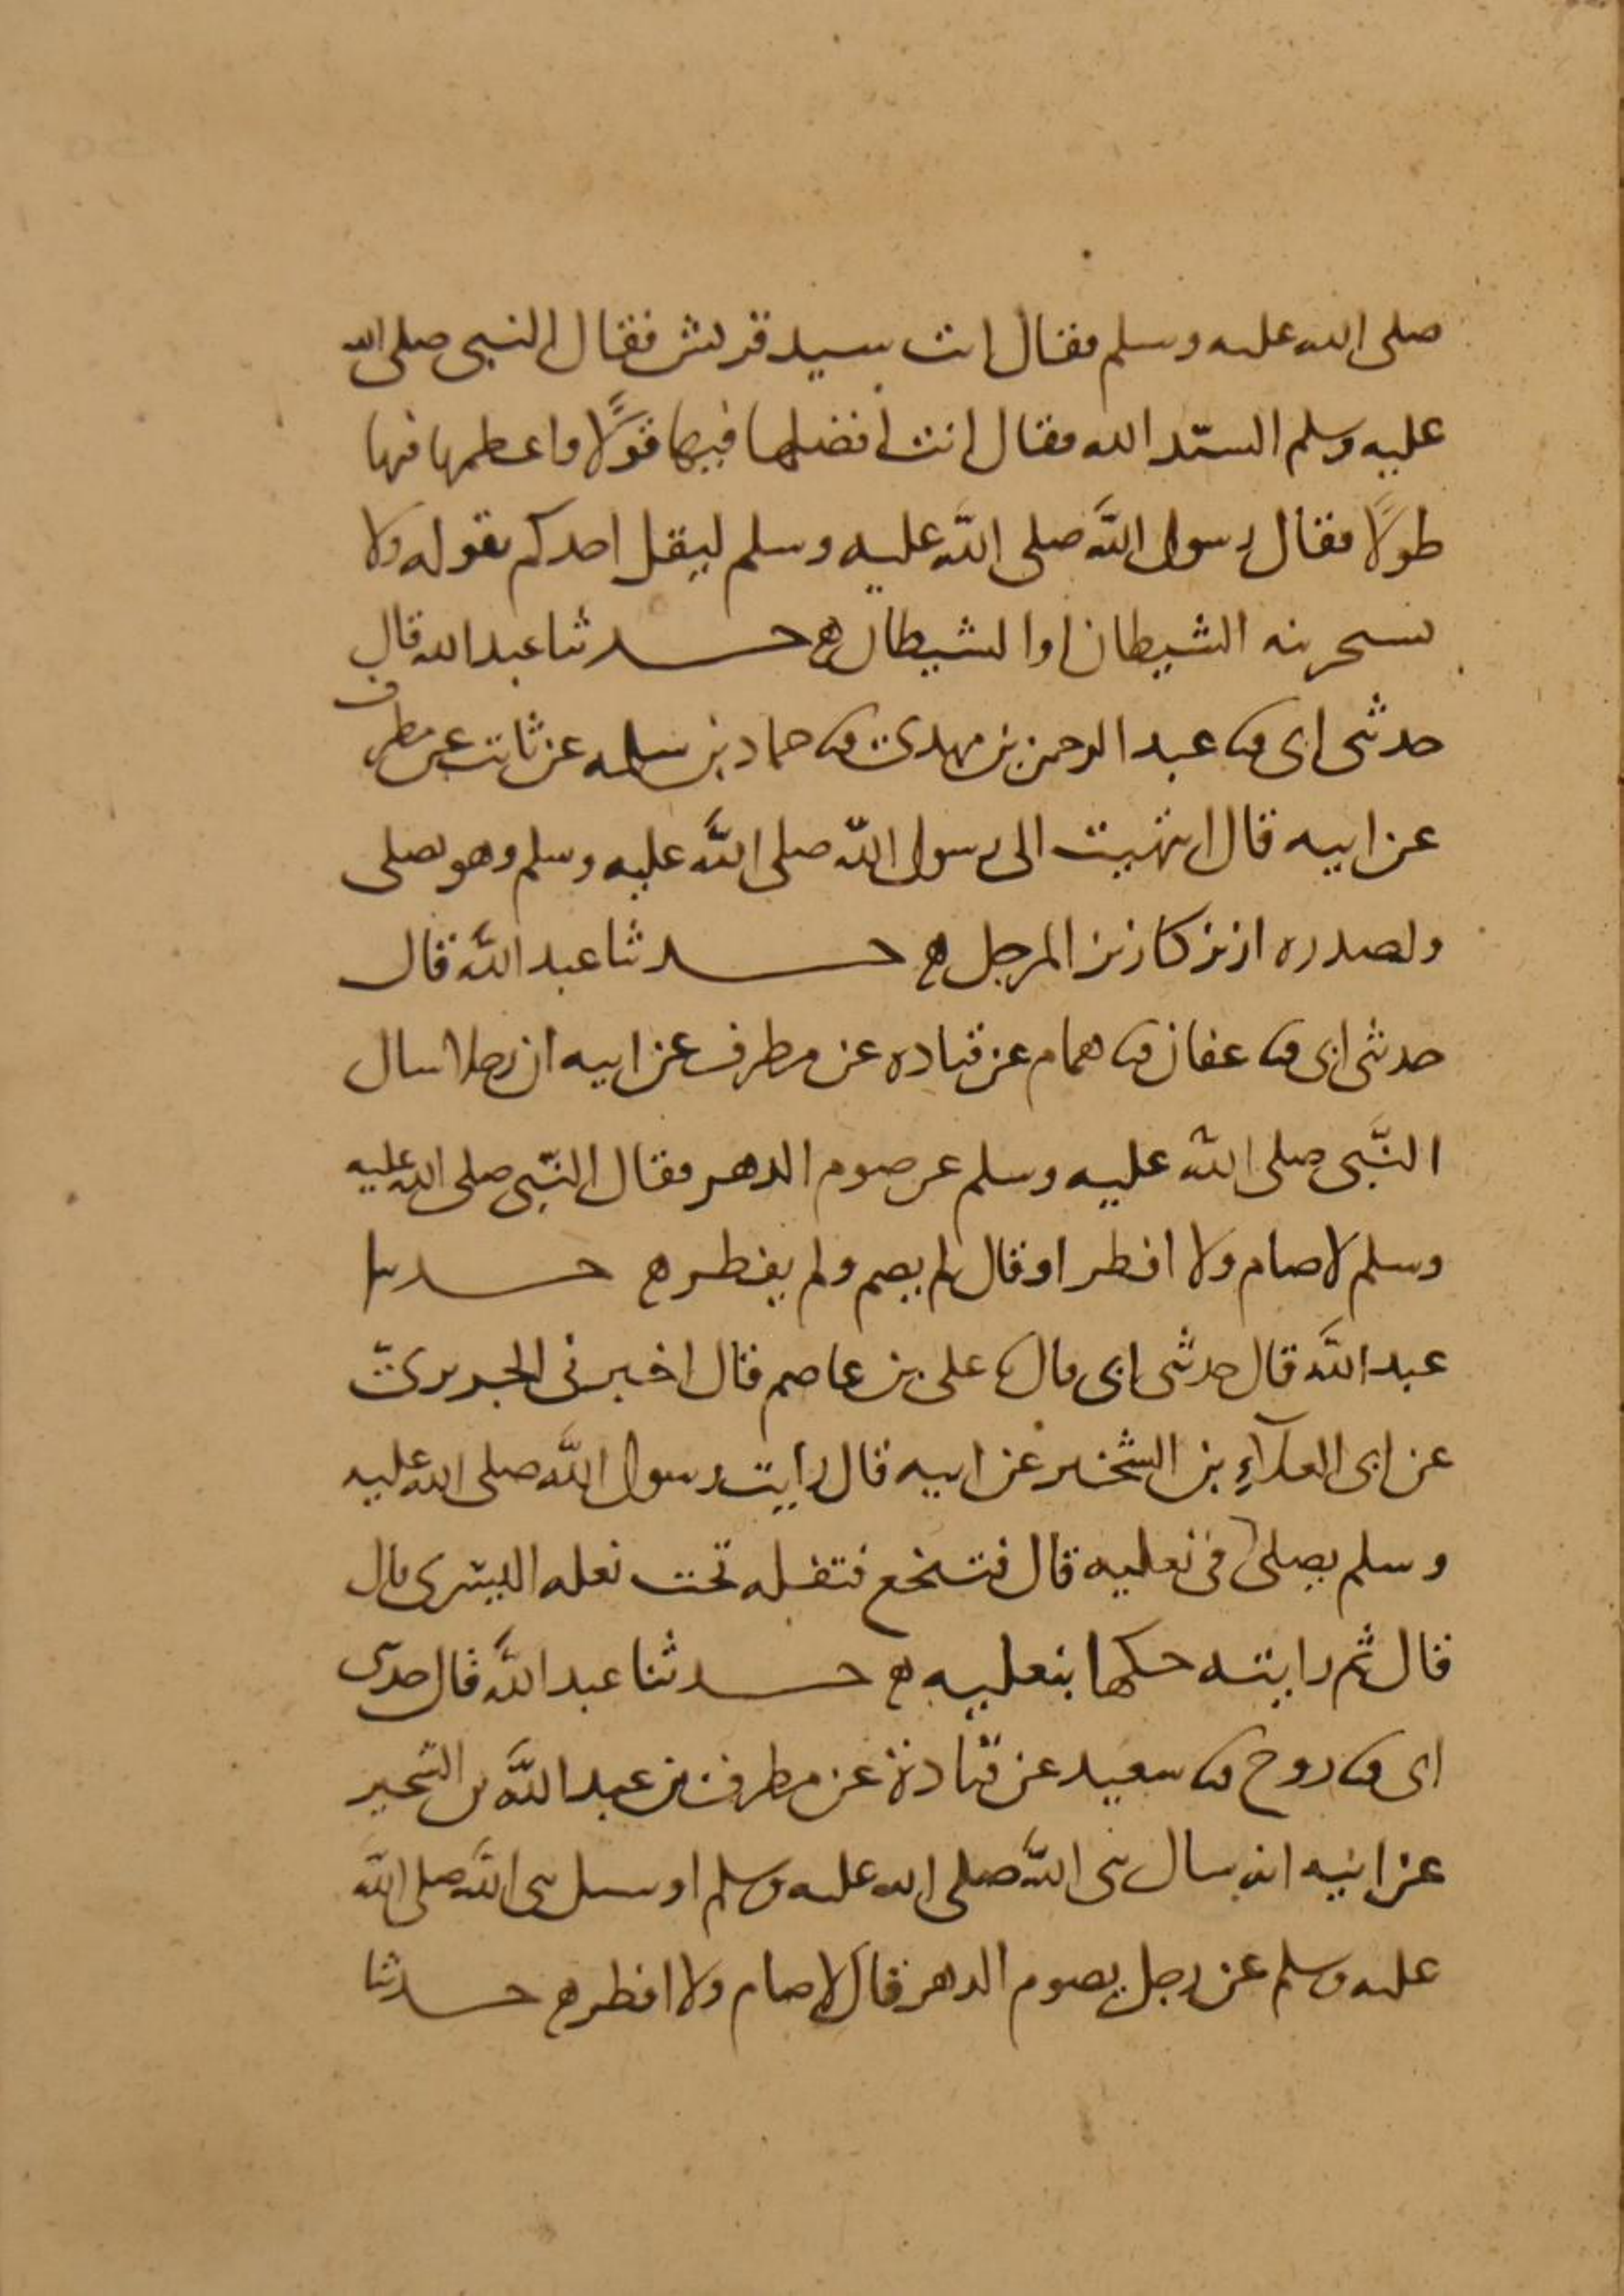 صلى الله عليه وسلم فقال انت سيد قريش فقال النبي صلى الله
عليه وسلم السيّد الله فقال انت افضلها فيها قولًا واعظمها فيها
طولًا فقال رسول اللَّه صلى اللَّه عليه وسلم ليقل احدكم بقوله ولا
يستجرينه الشيطان او الشيطان ه حدثنا عبد الله قال
حدثني ابي ثنا عبد الرحمن بن مهدي ثنا حماد بن سلمه عن ثابت عن مطرف
عن ابيه قال انتهيت الى رسول اللَّه صلى اللَّه عليه وسلم وهو يصلى
ولصدره ازيز كازيز المرجل ه حدثنا عبد اللَّه قال
حدثني ابي ثنا عفان ثنا همام عن قتاده عن مطرف عن ابيه ان رجلا سال
النَّبي صلى اللَّه عليه وسلم عن صوم الدهر فقال النّبي صلى الله عليه
وسلم لا صام ولا افطر او قال لم يصم ولم يفطر ه حدثنا
عبد اللَّه قال حدثني ابي قال ثنا علي بن عاصم قال اخبرني الجريري
عن ابي العلآءِ بن الشخير عن ابيه قال رايت رسول اللَّه صلى الله عليه
وسلم يصلى في نعليه قال فتنخع فتفله تحت نعله اليسرى قال
قال ثم رايته حكها بنعليه ه حدثنا عبد اللَّه قال حدثني
ابي ثنا روح ثنا سعيد عن قتادة عن مطرف بن عبد اللَّه بن الشخير
عن ابيه انه سال نبي اللَّه صلى الله عليه وسلم او سيل نبي اللَّه صلى اللَّه
عليه وسلم عن رجل يصوم الدهر قال لا صام ولا افطر ه حدثنا